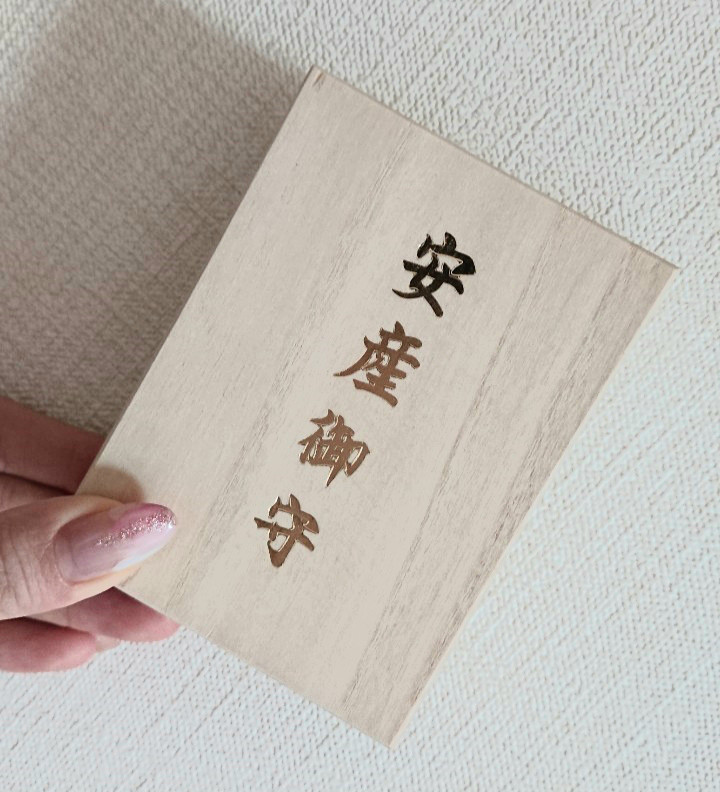 安産御守